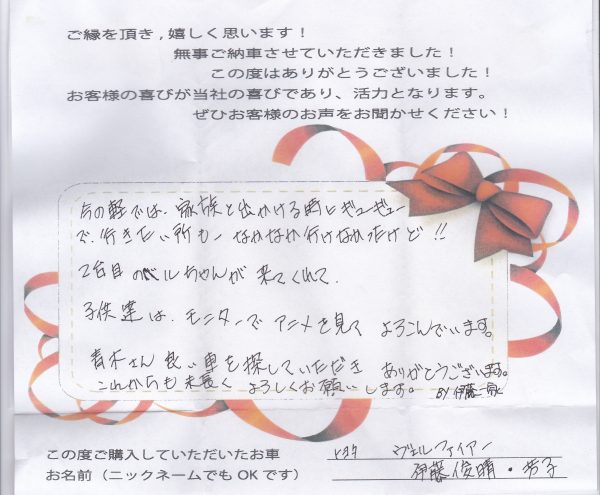 ご縁を頂き，嬉しく思います！
無事ご納車させていただきました！
この度はありがとうございました！
お客様の喜びが当社の喜びであり、活力となります。
ぜひお客様のお声をお聞かせください！
の軽では、家族と出かける時にギューギュー
で、行きたい所も、なかなか行けなかたけど!!
2台目のベルちゃんが来てくれて、
子供達は、モニターでアニメを見て よろこんでいます。
青木さん良い車を探していただき ありがとうございます。
これからも末長く よろしくお願いします。 BY 伊藤一家
この度ご購入していただいたお車 トヨタ ヴェルファイアー
お名前（ニックネームでもOKです） 伊藤俊晴・芳子